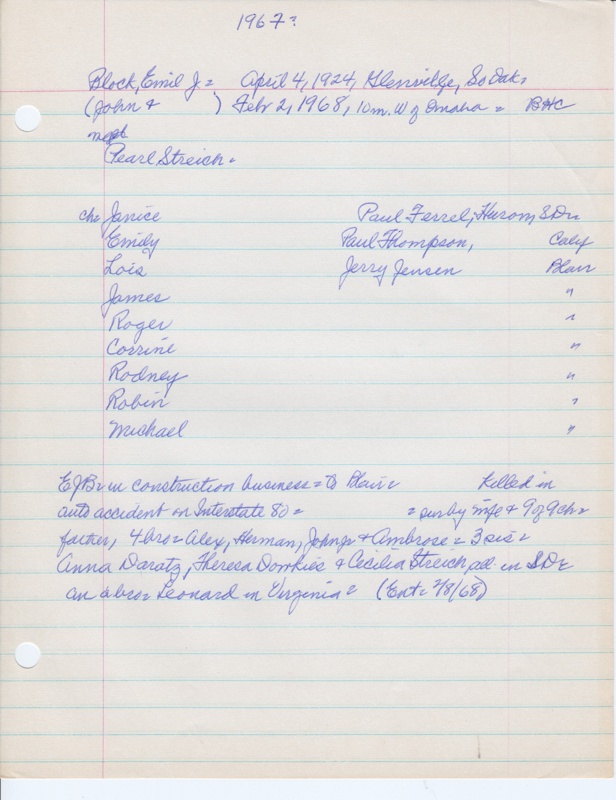 1967?
Block, Emil J = April 4, 1924, Glenville, So Dak =
(John & ) Febr 2, 1968, 10 m. W of Omaha = BHC
Pearl Streich =
ch = Janice Paul Ferrel, Huron, S D =
Emily Paul Thompson, Calif
Lois Jerry Jensen Blair
James "
Roger "
Corrine "
Rodney "
Robin "
Michael "
E J B in construction business = to Blair = Killed in
auto accident on Interstate 80 = = sur by wife & 9 of 9 ch =
father, 4 bro = Alex, Herman, John jr & Ambrose = 3 sis =
Anna Daratz, Theresa & Cecilia Streich, all in S D =
an a bro = Leonard in Virginia = (Ent = 2/8/68)